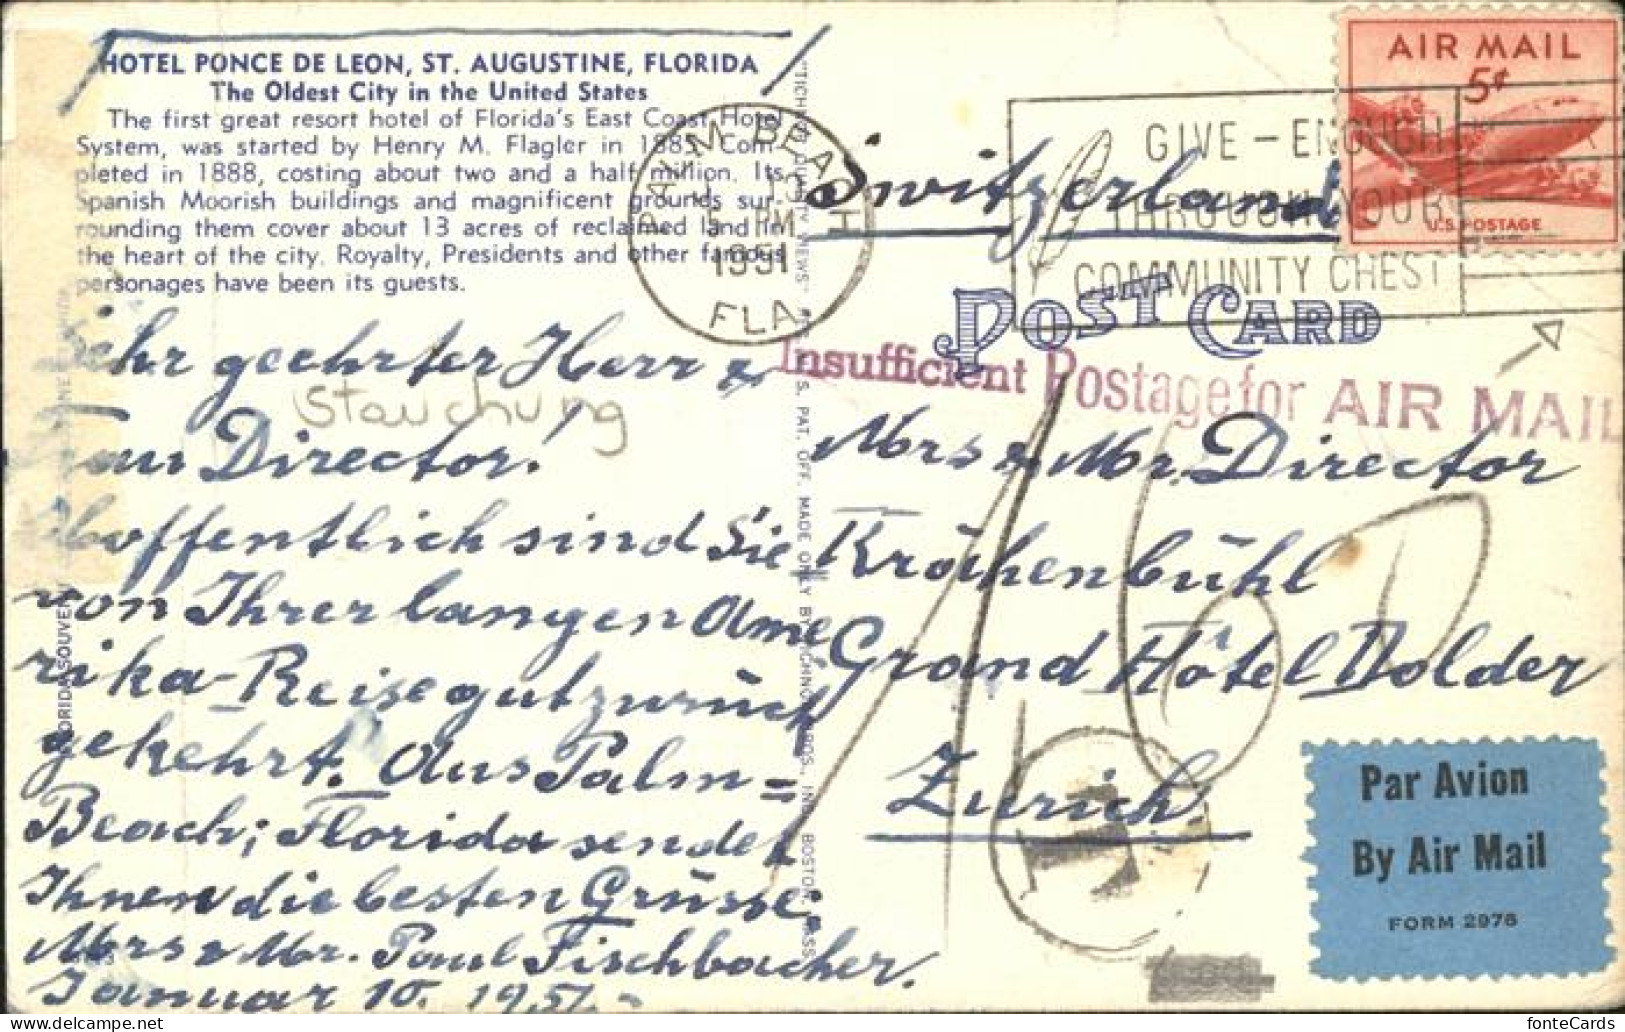 HOTEL PONCE DE LEON, ST. AUGUSTINE, FLORIDA
The Oldest City in the United States
The first great resort hotel of Florida's East Coast Hotel
System, was started by Henry M. Flagler in 1885. Com-
pleted in 1888, costing about two and a half million. Its
Spanish Moorish buildings and magnificent grounds sur-
rounding them cover about 13 acres of reclaimed land in
the heart of the city. Royalty, Presidents and other famous
personages have been its guests.
Sehr geehrter Herr &
Stauchung
Director!
hoffentlich sind Sie
von Ihrer langen Ame
rika-Reise gut zurück
gekehrt. Aus Palm=
Beach; Florida sendet
Ihnen die besten Grüsse:
Mrs & Mr. Paul Fischbacher.
Januar 10. 1951.
PALM BEACH
5 PM
1951
FLA.
GIVE - ENOUGH
THROUGH YOUR
COMMUNITY CHEST
AIR MAIL
5¢
U.S. POSTAGE
Switzerland
POST CARD
Insufficient Postage for AIR MAIL
Mrs & Mr. Director
Krähenbühl
Grand Hôtel Dolder
Zürich.
T
Par Avion
By Air Mail
FORM 2978
"TICHNOR QUALITY VIEWS" REG. U. S. PAT. OFF. MADE ONLY BY TICHNOR BROS., INC., BOSTON, MASS.
fonteCards